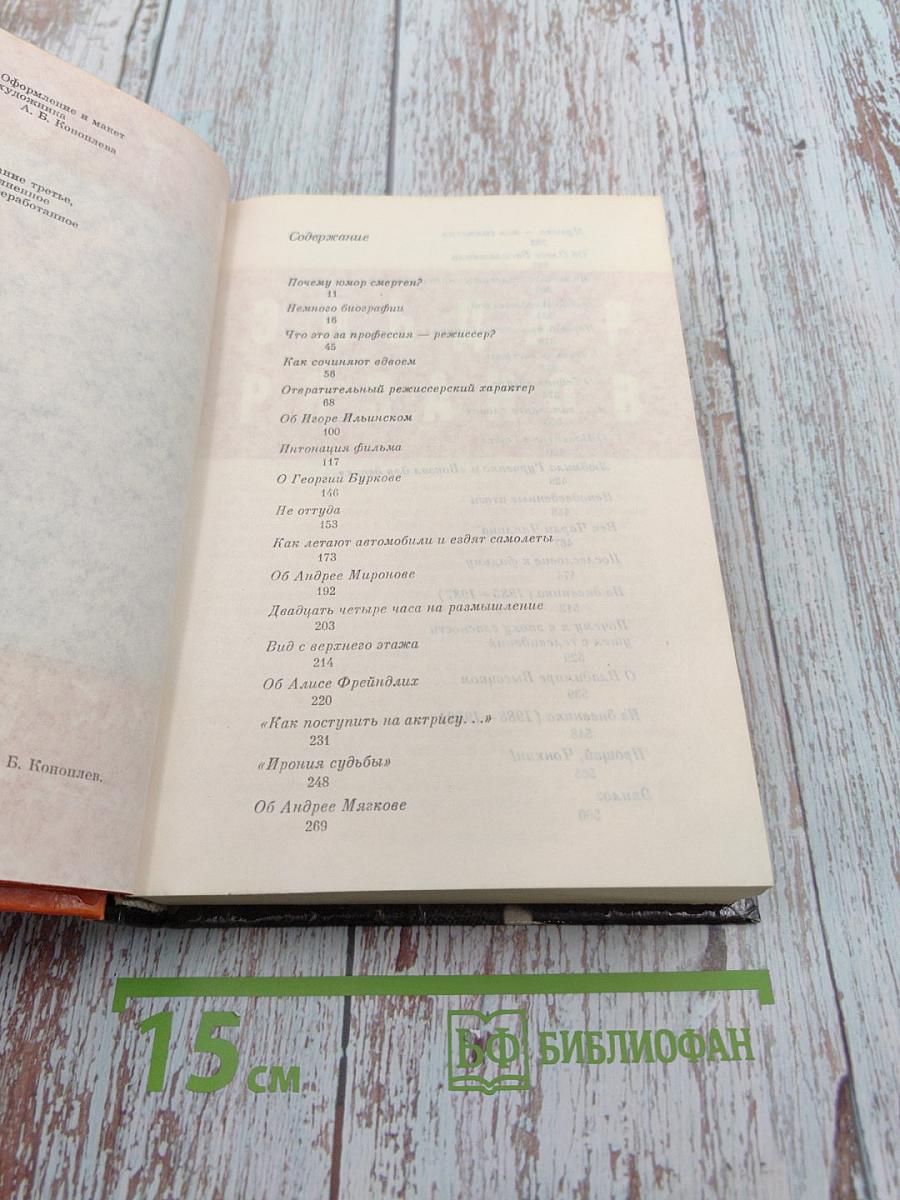 Оформление и макет
художника
А. Б. Коноплева
третье,
Б. Коноплев.
Содержание
Почему юмор смертен?
11
Немного биографии
16
Что это за профессия — режиссер?
45
Как сочиняют вдвоем
56
Отвратительный режиссерский характер
68
Об Игоре Ильинском
100
Интонация фильма
117
О Георгии Буркове
146
Не оттуда
153
Как летают автомобили и ездят самолеты
173
Об Андрее Миронове
192
Двадцать четыре часа на размышление
203
Вид с верхнего этажа
214
Об Алисе Фрейндлих
220
«Как поступить на актрису...»
231
«Ирония судьбы»
248
Об Андрее Мягкове
269
15 см
БФ БИБЛИОФАН